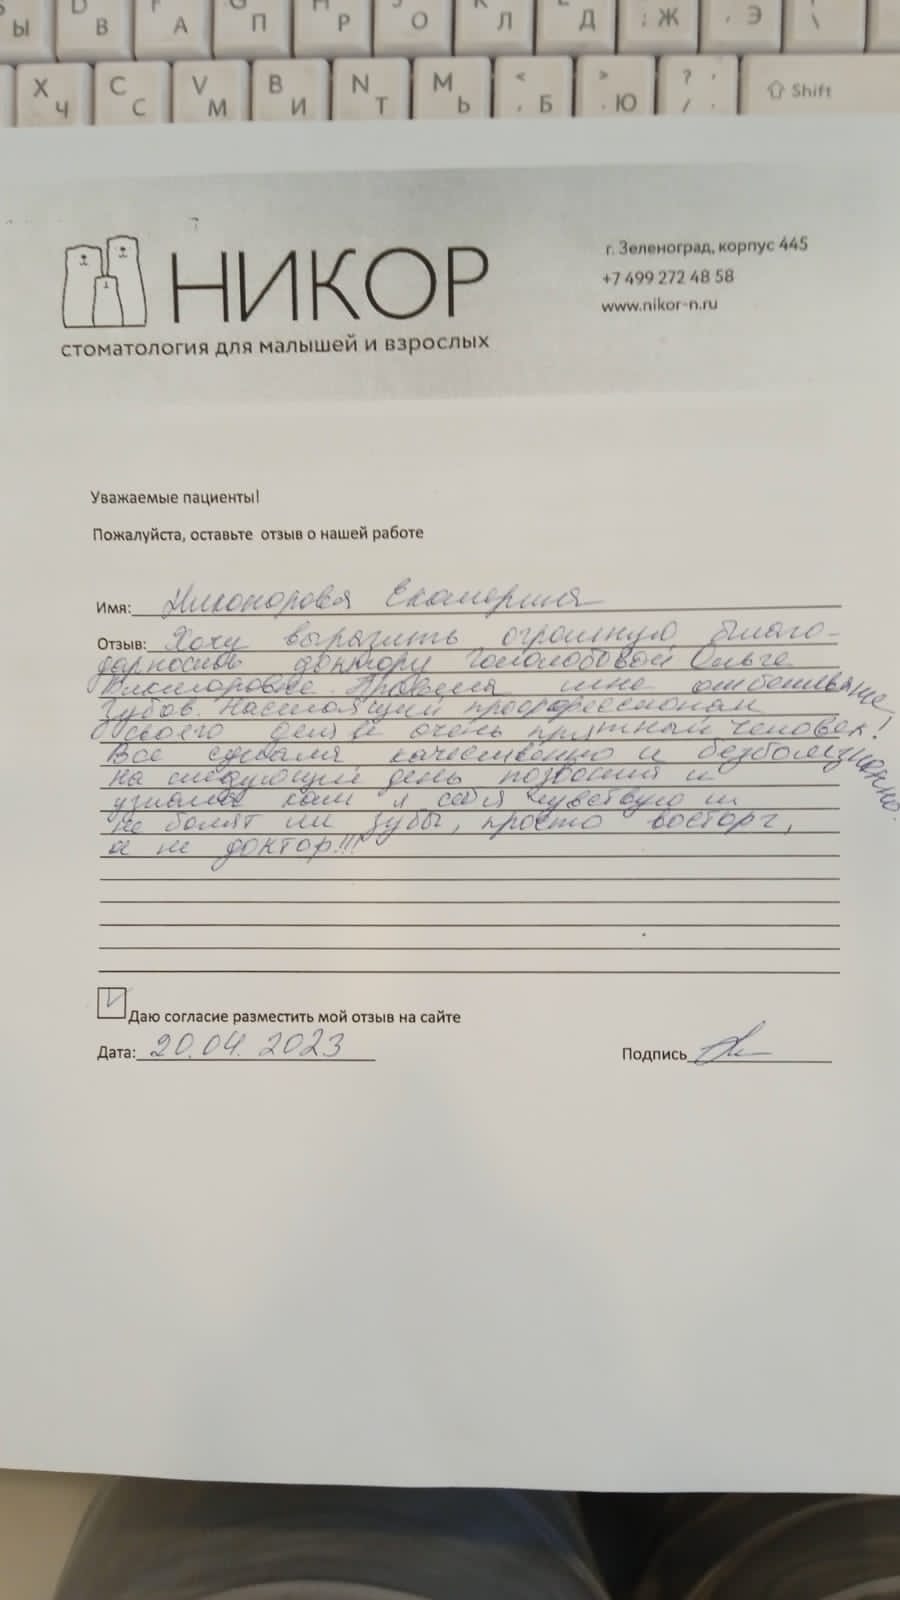 Ы В А П Р О Л Д ; Ж , Э \
X Ч C С V М B И N Т M Ь < , Б > . Ю ? / , . Shift
НИКОР
стоматология для малышей и взрослых
г. Зеленоград, корпус 445
+7 499 272 48 58
www.nikor-n.ru
Уважаемые пациенты!
Пожалуйста, оставьте отзыв о нашей работе
Имя: Никонорова Екатерина
Отзыв: Хочу выразить огромную благо-
дарность доктору Гололобовой Ольге
Викторовне. Провела мне отбеливание
зубов. Настоящий профессионал
своего дела и очень приятный человек!
Все сделала качественно и безболезненно.
на следующий день позвонил и
узнала как я себя чувствую и
не болят ли зубы, просто восторг,
а не доктор!!!
Даю согласие разместить мой отзыв на сайте
Дата: 20.04.2023
Подпись